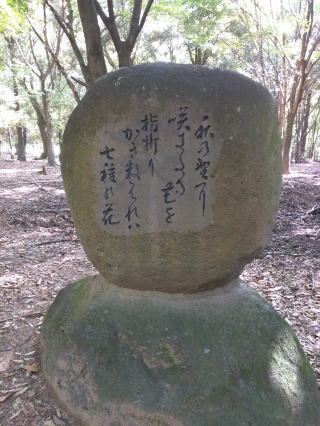 秋の野に
咲きたる花を
指折り
かき数ふれば
七種の花